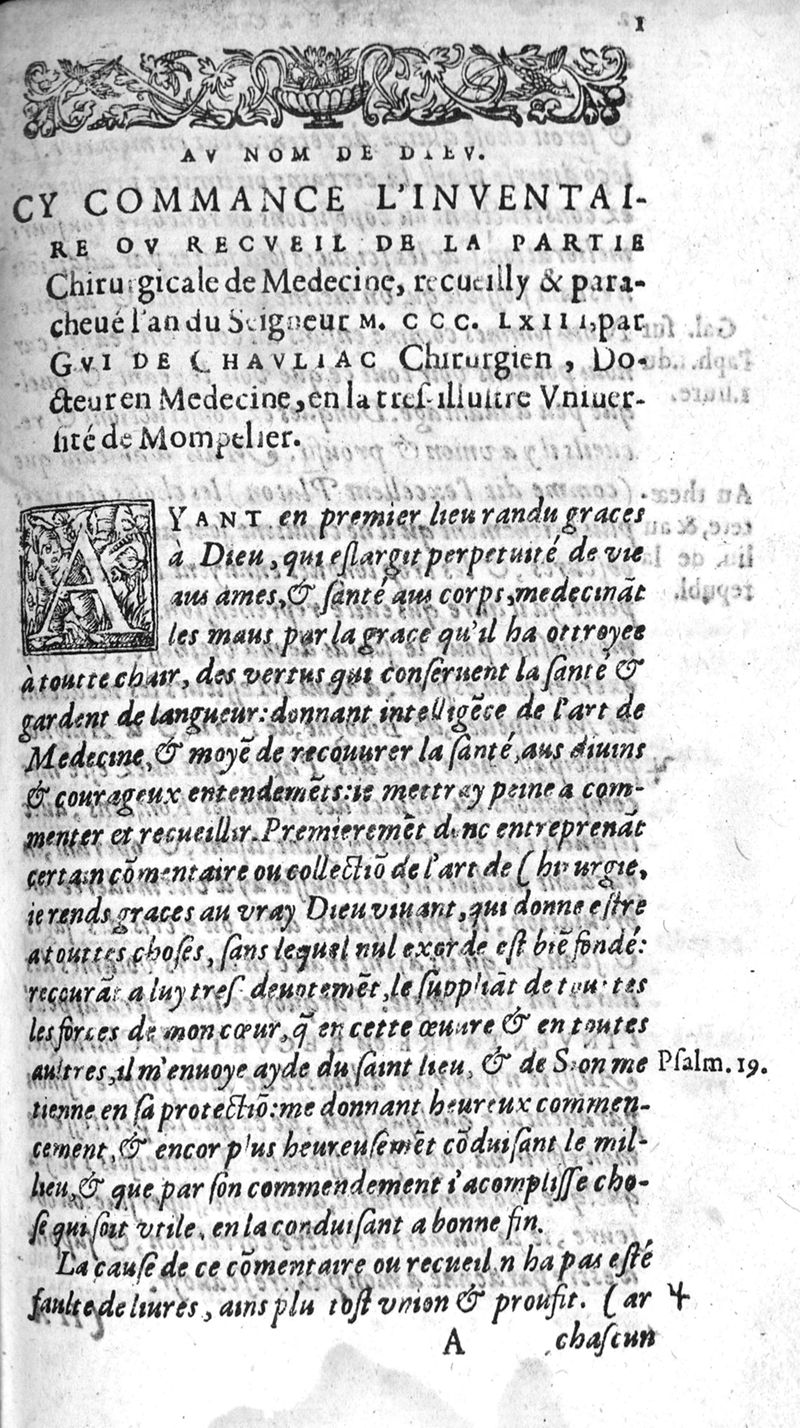 1
AV NOM DE DIEV.
CY COMMANCE L'INVENTAI-
RE OV RECVEIL DE LA PARTIE
Chirurgicale de Medecine, recueilly & para-
cheué l'an du Seigneur M. CCC. LXIII, par
GVI DE CHAVLIAC Chirurgien, Do-
cteur en Medecine, en la tres-illustre Vniuer-
sité de Mompelier.
AYANT en premier lieu randu graces
à Dieu, qui eslargit perpetuité de vie
aus ames, & santé aus corps, medecinãt
les maus par la grace qu'il ha ottroyee
à toutte chair, des vertus qui conseruent la santé &
gardent de langueur: donnant intelligẽce de l'art de
Medecine, & moyẽ de recouurer la santé, aus diuins
& courageux entendemẽts: ie mettray peine a com-
menter et recueillir. Premieremẽt donc entreprenãt
certain cõmentaire ou collectiõ de l'art de Chirurgie,
ie rends graces au vray Dieu viuant, qui donne estre
a touttes choses, sans lequel nul exorde est biẽ fondé:
recourãt a luy tres deuotemẽt, le suppliãt de touttes
les forces de mon cœur, q̃ en cette œuure & en toutes
aultres, il m'enuoye ayde du saint lieu, & de Sion me
Psalm. 19.
tienne en sa protectiõ: me donnant heureux commen-
cement, & encor plus heureusemẽt cõduisant le mil-
lieu, & que par son commendement i'acomplisse cho-
se qui soit vtile, en la conduisant a bonne fin.
La cause de ce cõmentaire ou recueil n'ha pas esté
faulte de liures, ains plu tost vnion & proufit. Car
A
chascun